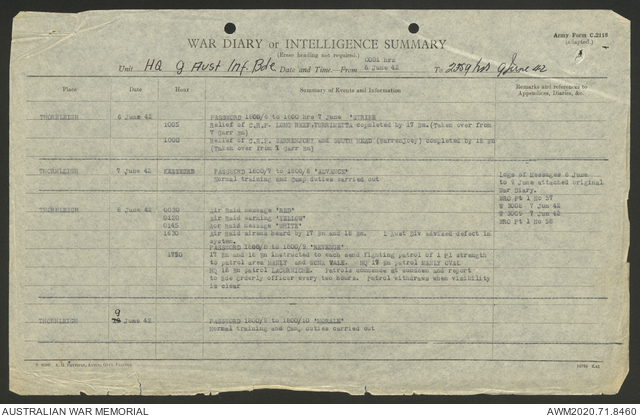 Army Form C.2118
(adapted.)
WAR DIARY or INTELLIGENCE SUMMARY
(Erase heading not required.)
Unit HQ 9 Aust Inf Bde Date and Time—From 0001 hrs 6 June 42 To 2359 hrs 9 June 42
Place Date Hour Summary of Events and Information Remarks and references to Appendices, Diaries, &c.
THORNLEIGH 6 June 42 PASSWORD 1800/6 to 1800 hrs 7 June "STRIKE
1005 Relief of LONG REEF completed by 17 Bn.(Taken over from
7 Garr Bn)
1000 Relief of and SOUTH HEAD (Barrenjoey) completed by 18 Bn
(Taken over from 7 Garr Bn)
THORNLEIGH 7 June 42 PASSWORD 1800/7 to 1800/8 "ADVANCE"
Normal training and Camp duties carried out
Logs of Messages 6 June
to 9 June attached original
War Diary.
BRO Pt 1 No 57
7 Jun 42
7 Jun 42
BRO Pt 1 No 58
THORNLEIGH 8 June 42 0030 Air Raid message "RED"
0120 Air Raid message "YELLOW"
0145 message "WHITE"
1630 Air Raid sirens heard by 17 Bn and 18 Bn. 1 Aust Div advised defect in
system.
PASSWORD 1800/8 to 1800/9
17 Bn and 18 Bn instructed to each send fighting patrol of 1 Pl strength
to patrol area MANLY and DEE WHY. HQ 17 Bn patrol MANLY OVAL
HQ 18 Bn patrol Patrols commence at sundown and report
to Bde orderly officer every two hours. Patrol withdraws when visibility
is clear
THORNLEIGH 9 June 42 PASSWORD 1800/9 to 1800/10 "MORALE"
Normal training and Camp duties carried out
AUSTRALIAN WAR MEMORIAL AWM2020.71.8460